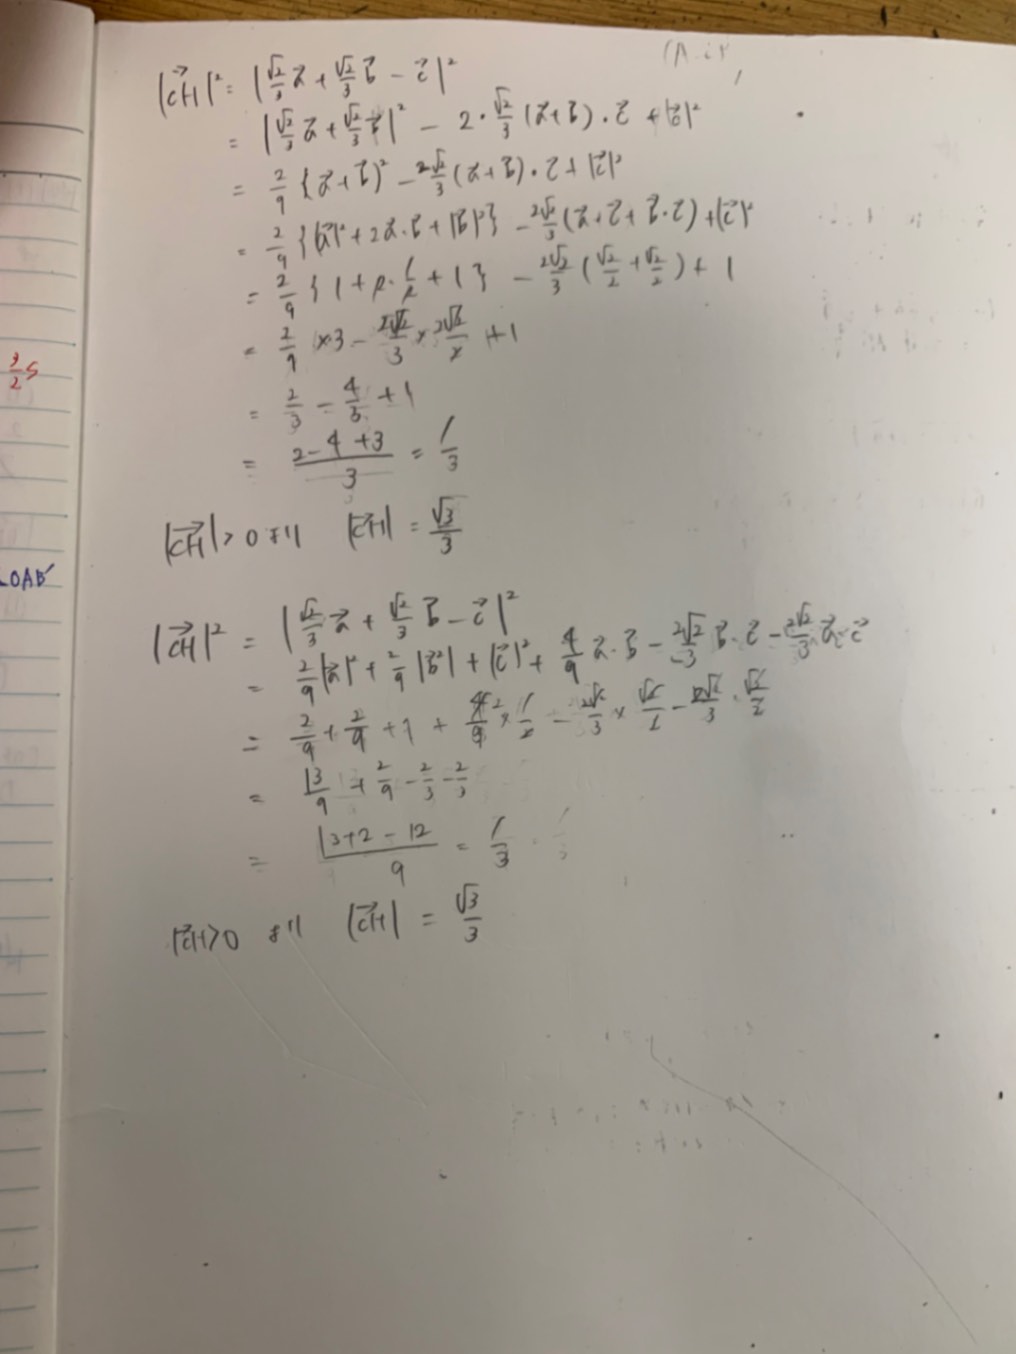 |CH→|² = |√2/3 a→ + √2/3 b→ - c→|²
= |√2/3 a→ + √2/3 b→|² - 2・√2/3 (a→+b→)・c→ + |c→|²
= 2/9 {a→+b→}² - 2√2/3 (a→+b→)・c→ + |c→|²
= 2/9 {|a→|² + 2a→・b→ + |b→|²} - 2√2/3 (a→+c→ + b→・c→) + |c→|²
= 2/9 {1 + 2・1/2 + 1} - 2√2/3 (√2/2 + √2/2) + 1
= 2/9 × 3 - 2√2/3 × 2√2/2 + 1
= 2/3 - 4/3 + 1
= (2-4+3)/3 = 1/3
|CH→| > 0 より |CH→| = √3/3
|CH→|² = |√2/3 a→ + √2/3 b→ - c→|²
= 2/9 |a→|² + 2/9 |b→²| + |c→|² + 4/9 a→・b→ - 2√2/3 b→・c→ - 2√2/3 a→・c→
= 2/9 + 2/9 + 1 + 4/9 × 1/2 - 2√2/3 × √2/2 - 2√2/3・√2/2
= 13/9 + 2/9 - 2/3 - 2/3
= (13+2-12)/9 = 1/3
|CH→|>0 より |CH→| = √3/3
OAB